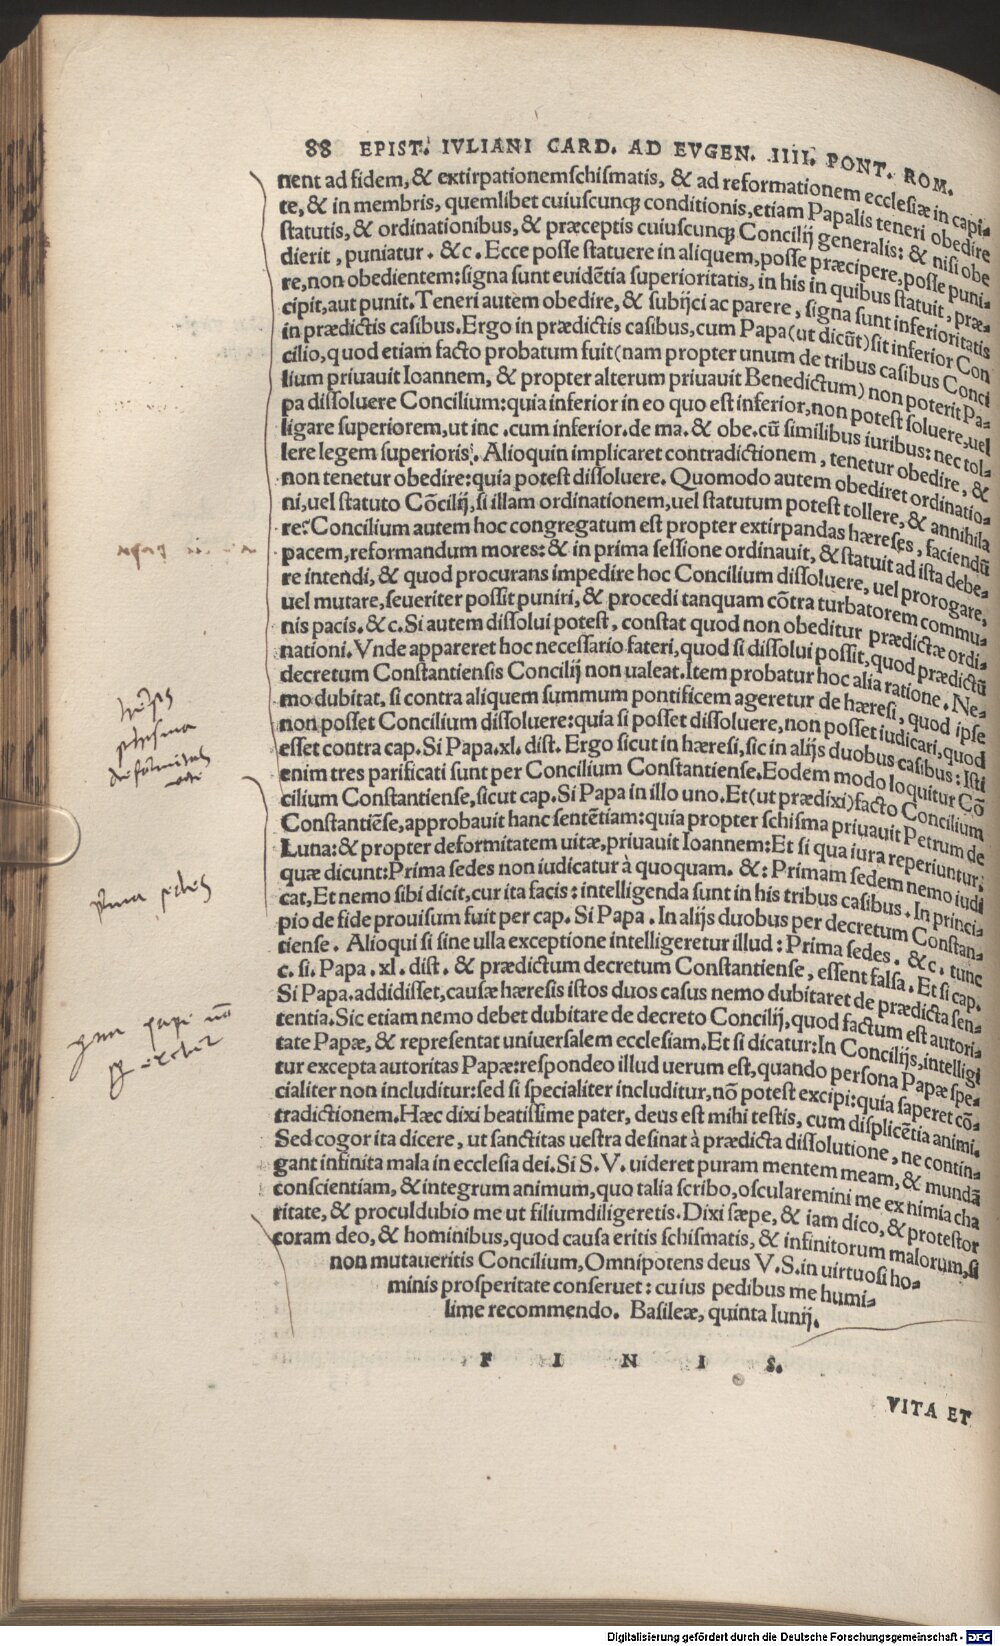 88 EPIST. IVLIANI CARD. AD EVGEN. IIII. PONT. ROM.
nent ad fidem, & extirpationem schismatis, & ad reformationem ecclesiæ in capi-
te, & in membris, quemlibet cuiuscunqꝫ conditionis, etiam Papalis teneri obedire
statutis, & ordinationibus, & præceptis cuiuscunqꝫ Concilij generalis: & nisi obe
dierit, puniatur. &c. Ecce posse statuere in aliquem, posse præcipere, posse puni-
re, non obedientem: signa sunt euidētia superioritatis, in his in quibus statuit, præ-
cipit, aut punit. Teneri autem obedire, & subijci ac parere, signa sunt inferioritatis
in prædictis casibus. Ergo in prædictis casibus, cum Papa (ut dicūt) sit inferior Con
cilio, quod etiam facto probatum fuit (nam propter unum de tribus casibus Conci
lium priuauit Ioannem, & propter alterum priuauit Benedictum) non poterit Pa-
pa dissoluere Concilium: quia inferior in eo quo est inferior, non potest soluere, uel
ligare superiorem, ut inc. cum inferior. de ma. & obe. cū similibus iuribus: nec tol-
lere legem superioris. Alioquin implicaret contradictionem, tenetur obedire, &
non tenetur obedire: quia potest dissoluere. Quomodo autem obediret ordinatio-
ni, uel statuto Cōcilij, si illam ordinationem, uel statutum potest tollere, & annihila
re? Concilium autem hoc congregatum est propter extirpandas hæreses, faciendū
pacem, reformandum mores: & in prima sessione ordinauit, & statuit ad ista debe-
re intendi, & quod procurans impedire hoc Concilium dissoluere, uel prorogare,
uel mutare, seueriter possit puniri, & procedi tanquam cōtra turbatorem commu-
nis pacis. &c. Si autem dissolui potest, constat quod non obeditur prædictæ ordi-
nationi. Vnde appareret hoc necessario fateri, quod si dissolui possit, quod prædictū
decretum Constantiensis Concilij non ualeat. Item probatur hoc alia ratione. Ne-
mo dubitat, si contra aliquem summum pontificem ageretur de hæresi, quod ipse
non posset Concilium dissoluere: quia si posset dissoluere, non posset iudicari, quod
esset contra cap. Si Papa. xl. dist. Ergo sicut in hæresi, sic in alijs duobus casibus: Isti
enim tres parificati sunt per Concilium Constantiense. Eodem modo loquitur Cō
cilium Constantiense, sicut cap. Si Papa in illo uno. Et (ut prædixi) facto Concilium
Constantiēse, approbauit hanc sentētiam: quia propter schisma priuauit Petrum de
Luna: & propter deformitatem uitæ, priuauit Ioannem: Et si qua iura reperiuntur,
quæ dicunt: Prima sedes non iudicatur à quoquam. &: Primam sedem nemo iudi
cat, Et nemo sibi dicit, cur ita facis: intelligenda sunt in his tribus casibus. In princi-
pio de fide prouisum fuit per cap. Si Papa. In alijs duobus per decretum Constan-
tiense. Alioqui si sine ulla exceptione intelligeretur illud: Prima sedes. &c. tunc
c. si. Papa. xl. dist. & prædictum decretum Constantiense, essent falsa. Et si cap.
Si Papa. addidisset, causæ hæresis istos duos casus nemo dubitaret de prædicta sen-
tentia. Sic etiam nemo debet dubitare de decreto Concilij, quod factum est autori-
tate Papæ, & representat uniuersalem ecclesiam. Et si dicatur: In Concilijs, intelligi
tur excepta autoritas Papæ: respondeo illud uerum est, quando persona Papæ spe-
cialiter non includitur: sed si specialiter includitur, nō potest excipi: quia saperet cō-
tradictionem. Hæc dixi beatissime pater, deus est mihi testis, cum displicētia animi.
Sed cogor ita dicere, ut sanctitas uestra desinat à prædicta dissolutione, ne contin-
gant infinita mala in ecclesia dei. Si S. V. uideret puram mentem meam, & mundā
conscientiam, & integrum animum, quo talia scribo, oscularemini me ex nimia cha
ritate, & proculdubio me ut filium diligeretis. Dixi sæpe, & iam dico, & protestor
coram deo, & hominibus, quod causa eritis schismatis, & infinitorum malorum, si
non mutaueritis Concilium, Omnipotens deus V. S. in uirtuosi ho-
minis prosperitate conseruet: cuius pedibus me humi-
lime recommendo. Basileæ, quinta Iunij.
F I N I S.
VITA ET
prima sedes
Digitalisierung gefördert durch die Deutsche Forschungsgemeinschaft - DFG